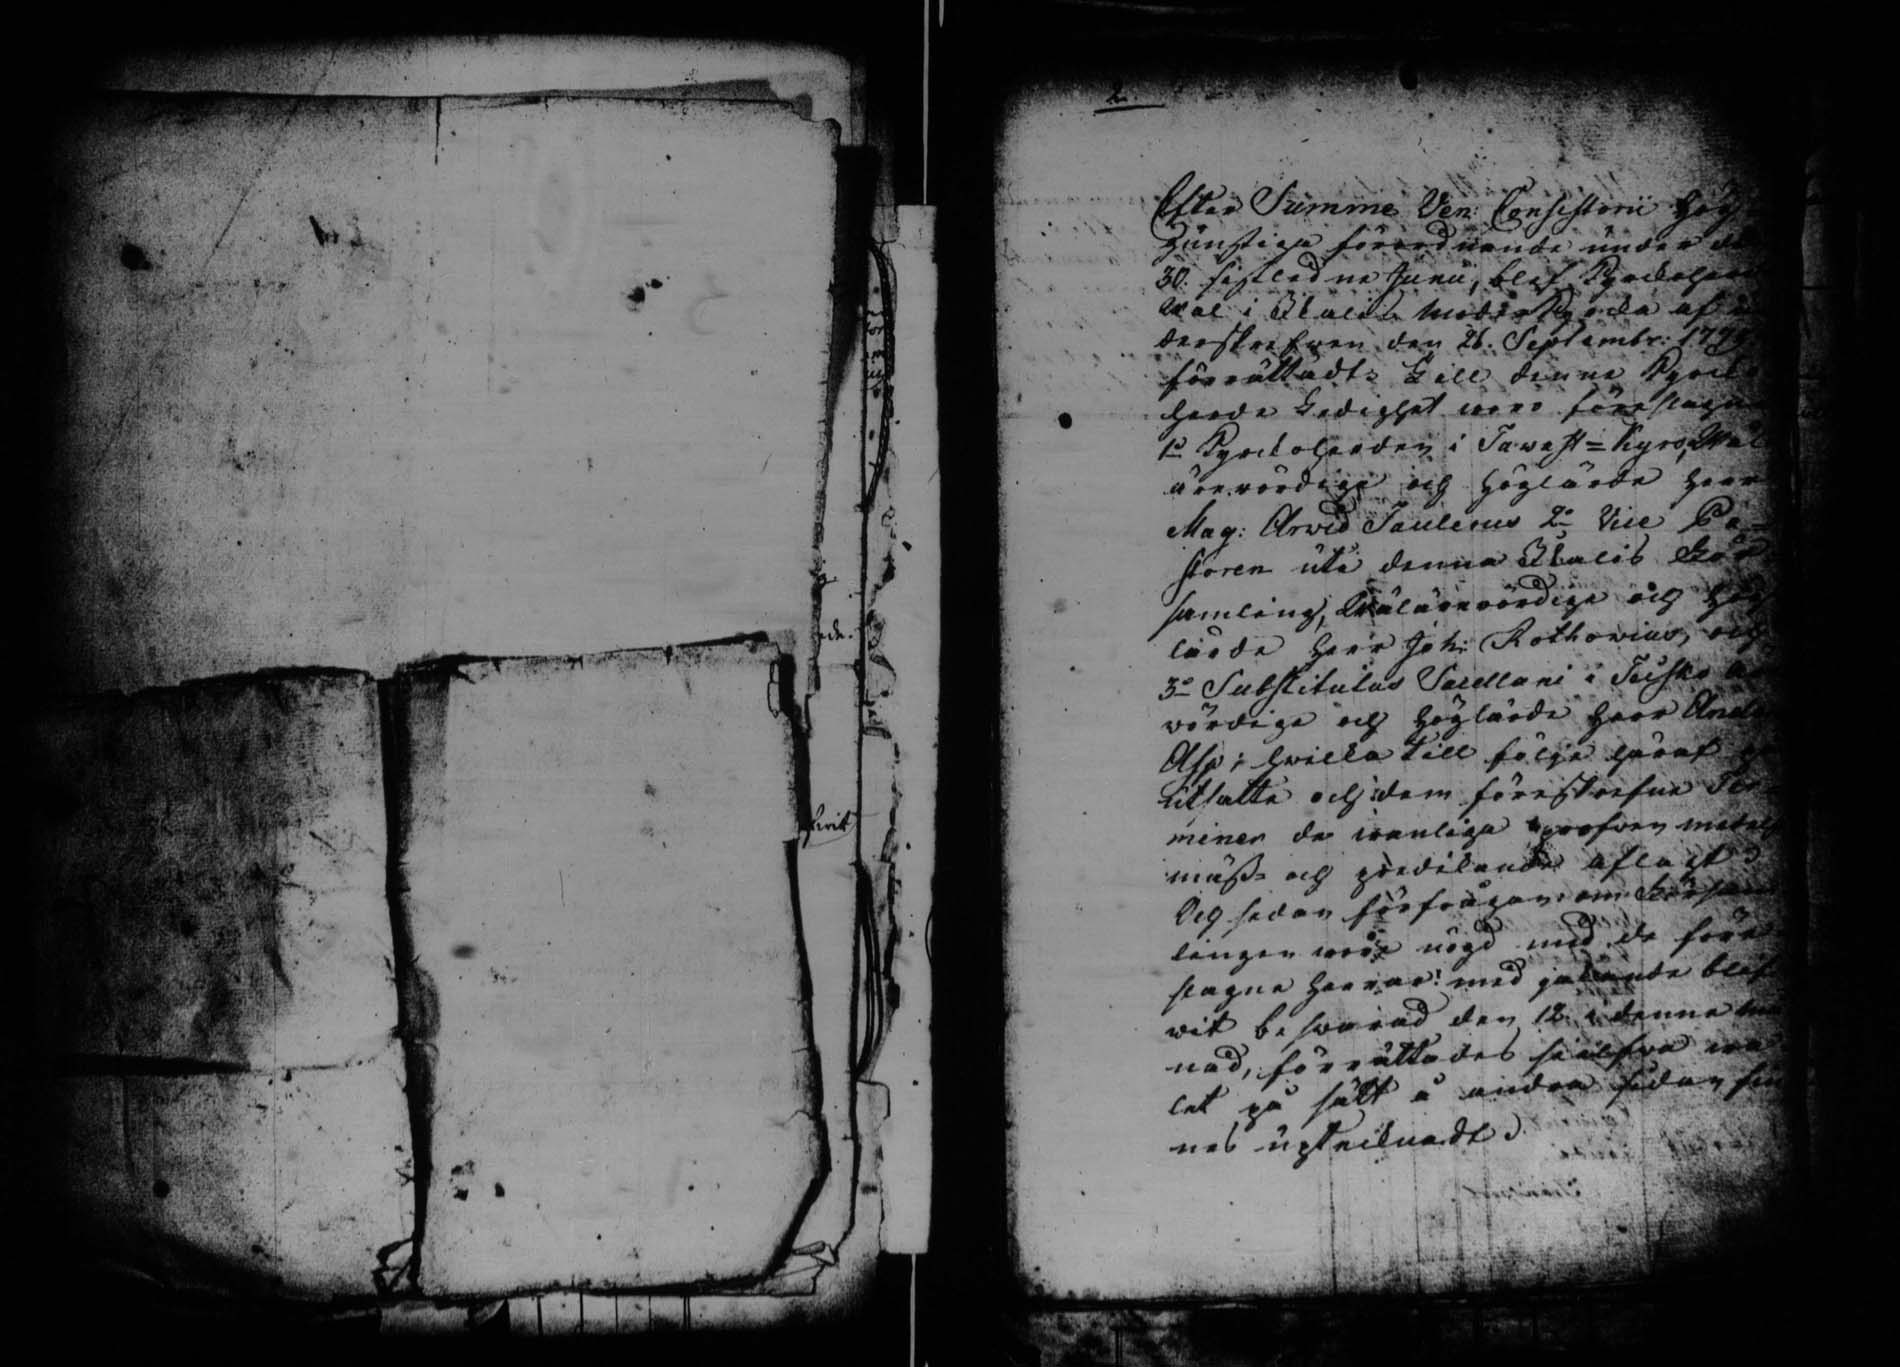 2.
Efter Summe Ven: Consistorii Hög-
gunstiga förordnande under den
30. sistledne Junii, blef Kyrckoherde
Wal i Ikalis Moder Kyrcka af un-
derskrefwen den 26. Septembr: 1779
förrättadt. Till denne Kyrcko-
herde Ledighet woro föreslagne
1o Kyrckoherden i Tawast=Kyro, Wäl
ärewördige och Höglärde Herr
Mag: Arwid Paulinus 2o Vice Pa-
storen uti denna Ikalis För-
samling, Wälärewördige och Hög
lärde Herr Joh: Rothovius, och
3o Substitutus Sacellani i Teisko
wördige och Höglärde Herr
Asp; hwilka till följe häraf
utsatte och dem föreskrefne Ter-
miner de wanliga profwen medelst
mäss- och predikande aflagt.
Och sedan förfrågan: om Försam-
lingen wore nögd med de före-
slagne Herrar: med jakande blif-
wit beswarad den 12 i denne må-
nad, förrättades sielfwa wa-
let på sätt å andra sidan fin-
nes uptecknadt.
ede.